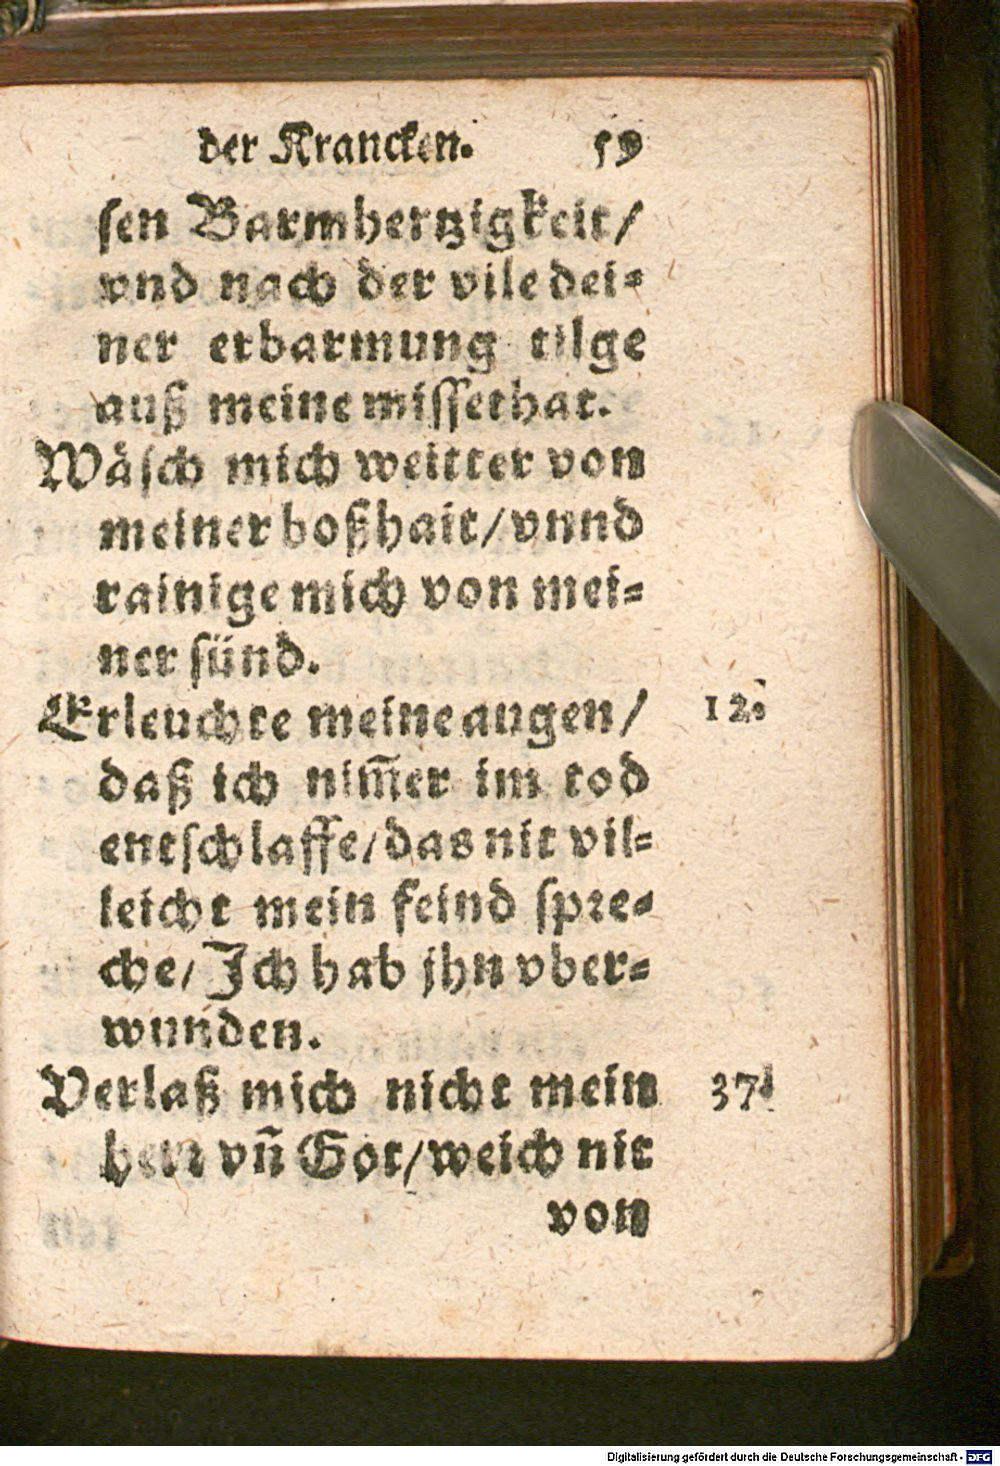 der Krancken. 59
sen Barmhertzigkeit/
vnd nach der vile dei-
ner erbarmung tilge
auß meine missethat.
Wäsch mich weitter von
meiner boßhait/ vnnd
rainige mich von mei-
ner sünd.
Erleuchte meine augen/ 12.
daß ich nim̃er im tod
entschlaffe/ das nit vil-
leicht mein feind spre-
che/ Ich hab jhn vber-
wunden.
Verlaß mich nicht mein 37.
herr vñ Got/ weich nit
von
Digitalisierung gefördert durch die Deutsche Forschungsgemeinschaft - DFG